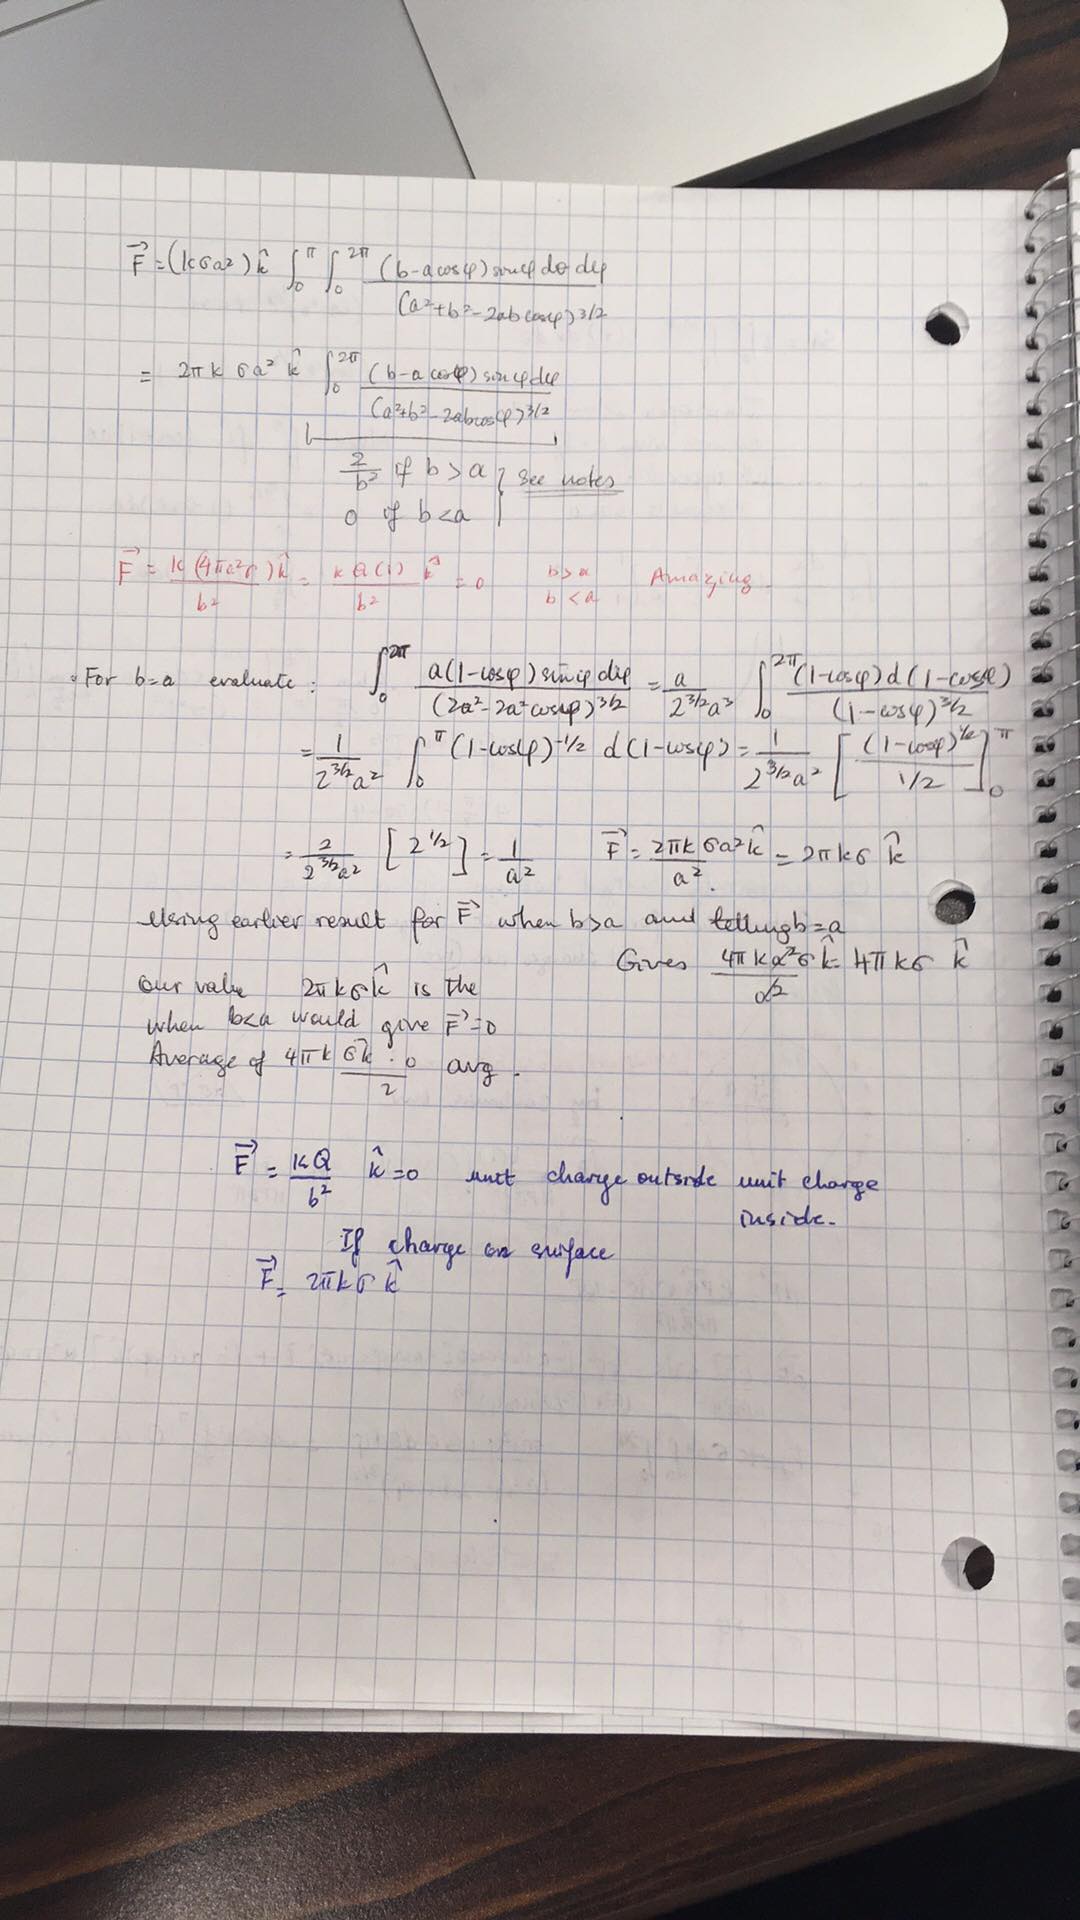 F⃗ = (kσa²) k̂ ∫₀^π ∫₀^2π (b-acosφ) sinφ dθ dφ / (a²+b²-2ab cosφ)^3/2
= 2π k σa² k̂ ∫₀^2π (b-a cosφ) sinφ dφ / (a²+b²-2abcosφ)^3/2
2/b² if b > a } see notes
0 if b<a
F⃗ = k(4πa²σ)k̂ / b² = kQ(1) / b² k̂ = 0 b>a b<a Amazing.
• For b=a evaluate : ∫₀^2π a(1-cosφ) sinφ dφ / (2a²-2a²cosφ)^3/2 = a / 2^3/2a³ ∫₀^2π (1-cosφ) d(1-cosφ) / (1-cosφ)^3/2
= 1 / 2^3/2a² ∫₀^π (1-cosφ)^-1/2 d(1-cosφ) = 1 / 2^3/2a² [ (1-cosφ)^1/2 / 1/2 ]₀^π
= 2 / 2^3/2a² [ 2^1/2 ] = 1/a² F⃗ = 2πkσa²k̂ / a². = 2πkσ k̂
Using earlier result for F⃗ when b>a and b=a
Gives 4πka²σ / a² k̂ = 4πkσ k̂
Our value 2πkσk̂ is the
when b<a would give F⃗=0
Average of 4πk σk̂ · 0 / 2 avg.
F⃗ = kQ / b² k̂ = 0 unit charge outside unit charge
inside.
If charge on surface
F⃗ = 2πkσ k̂